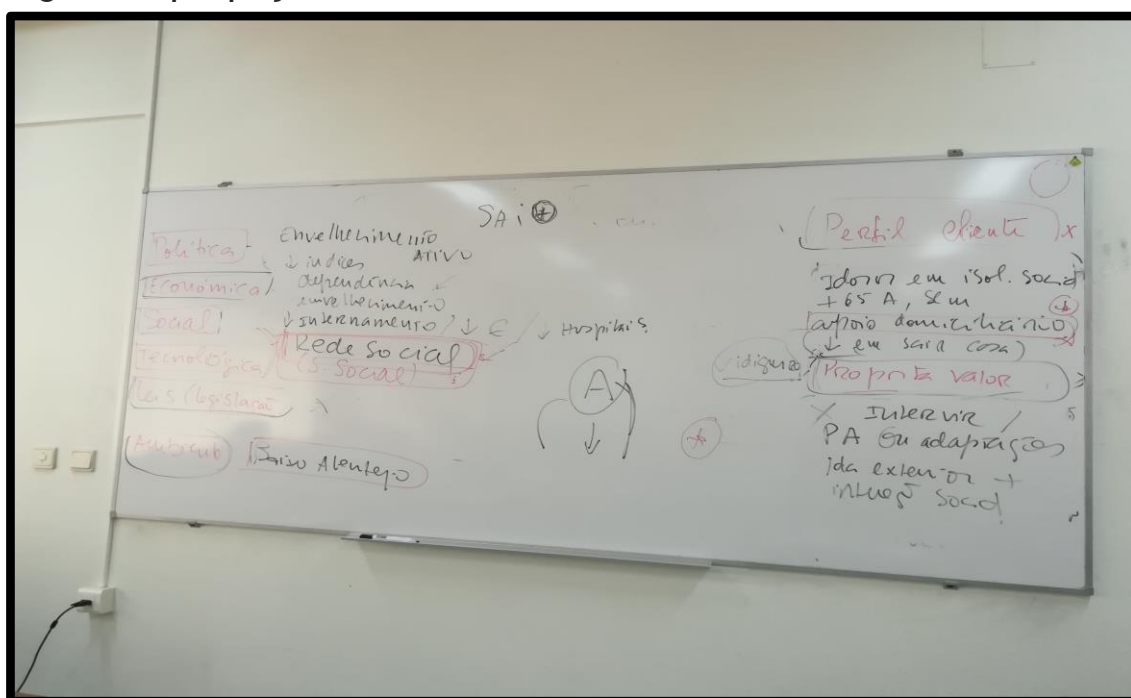 SAi +
Política
Económica
Social
Tecnológica
Leis (legislação
Ambiente
Envelhecimento
Ativo
↓ índices
dependência
envelhecimento
↓ Internamento / ↓ €
↓ Hospitais
Rede Social
(S. Social)
Baixo Alentejo
A
↓
Perfil cliente
Idosos em isol. social
+ 65 A, sem
apoio domiciliário
(↓ em sair casa)
Proposta valor
Intervir /
PA ou adaptações
ida exterior +